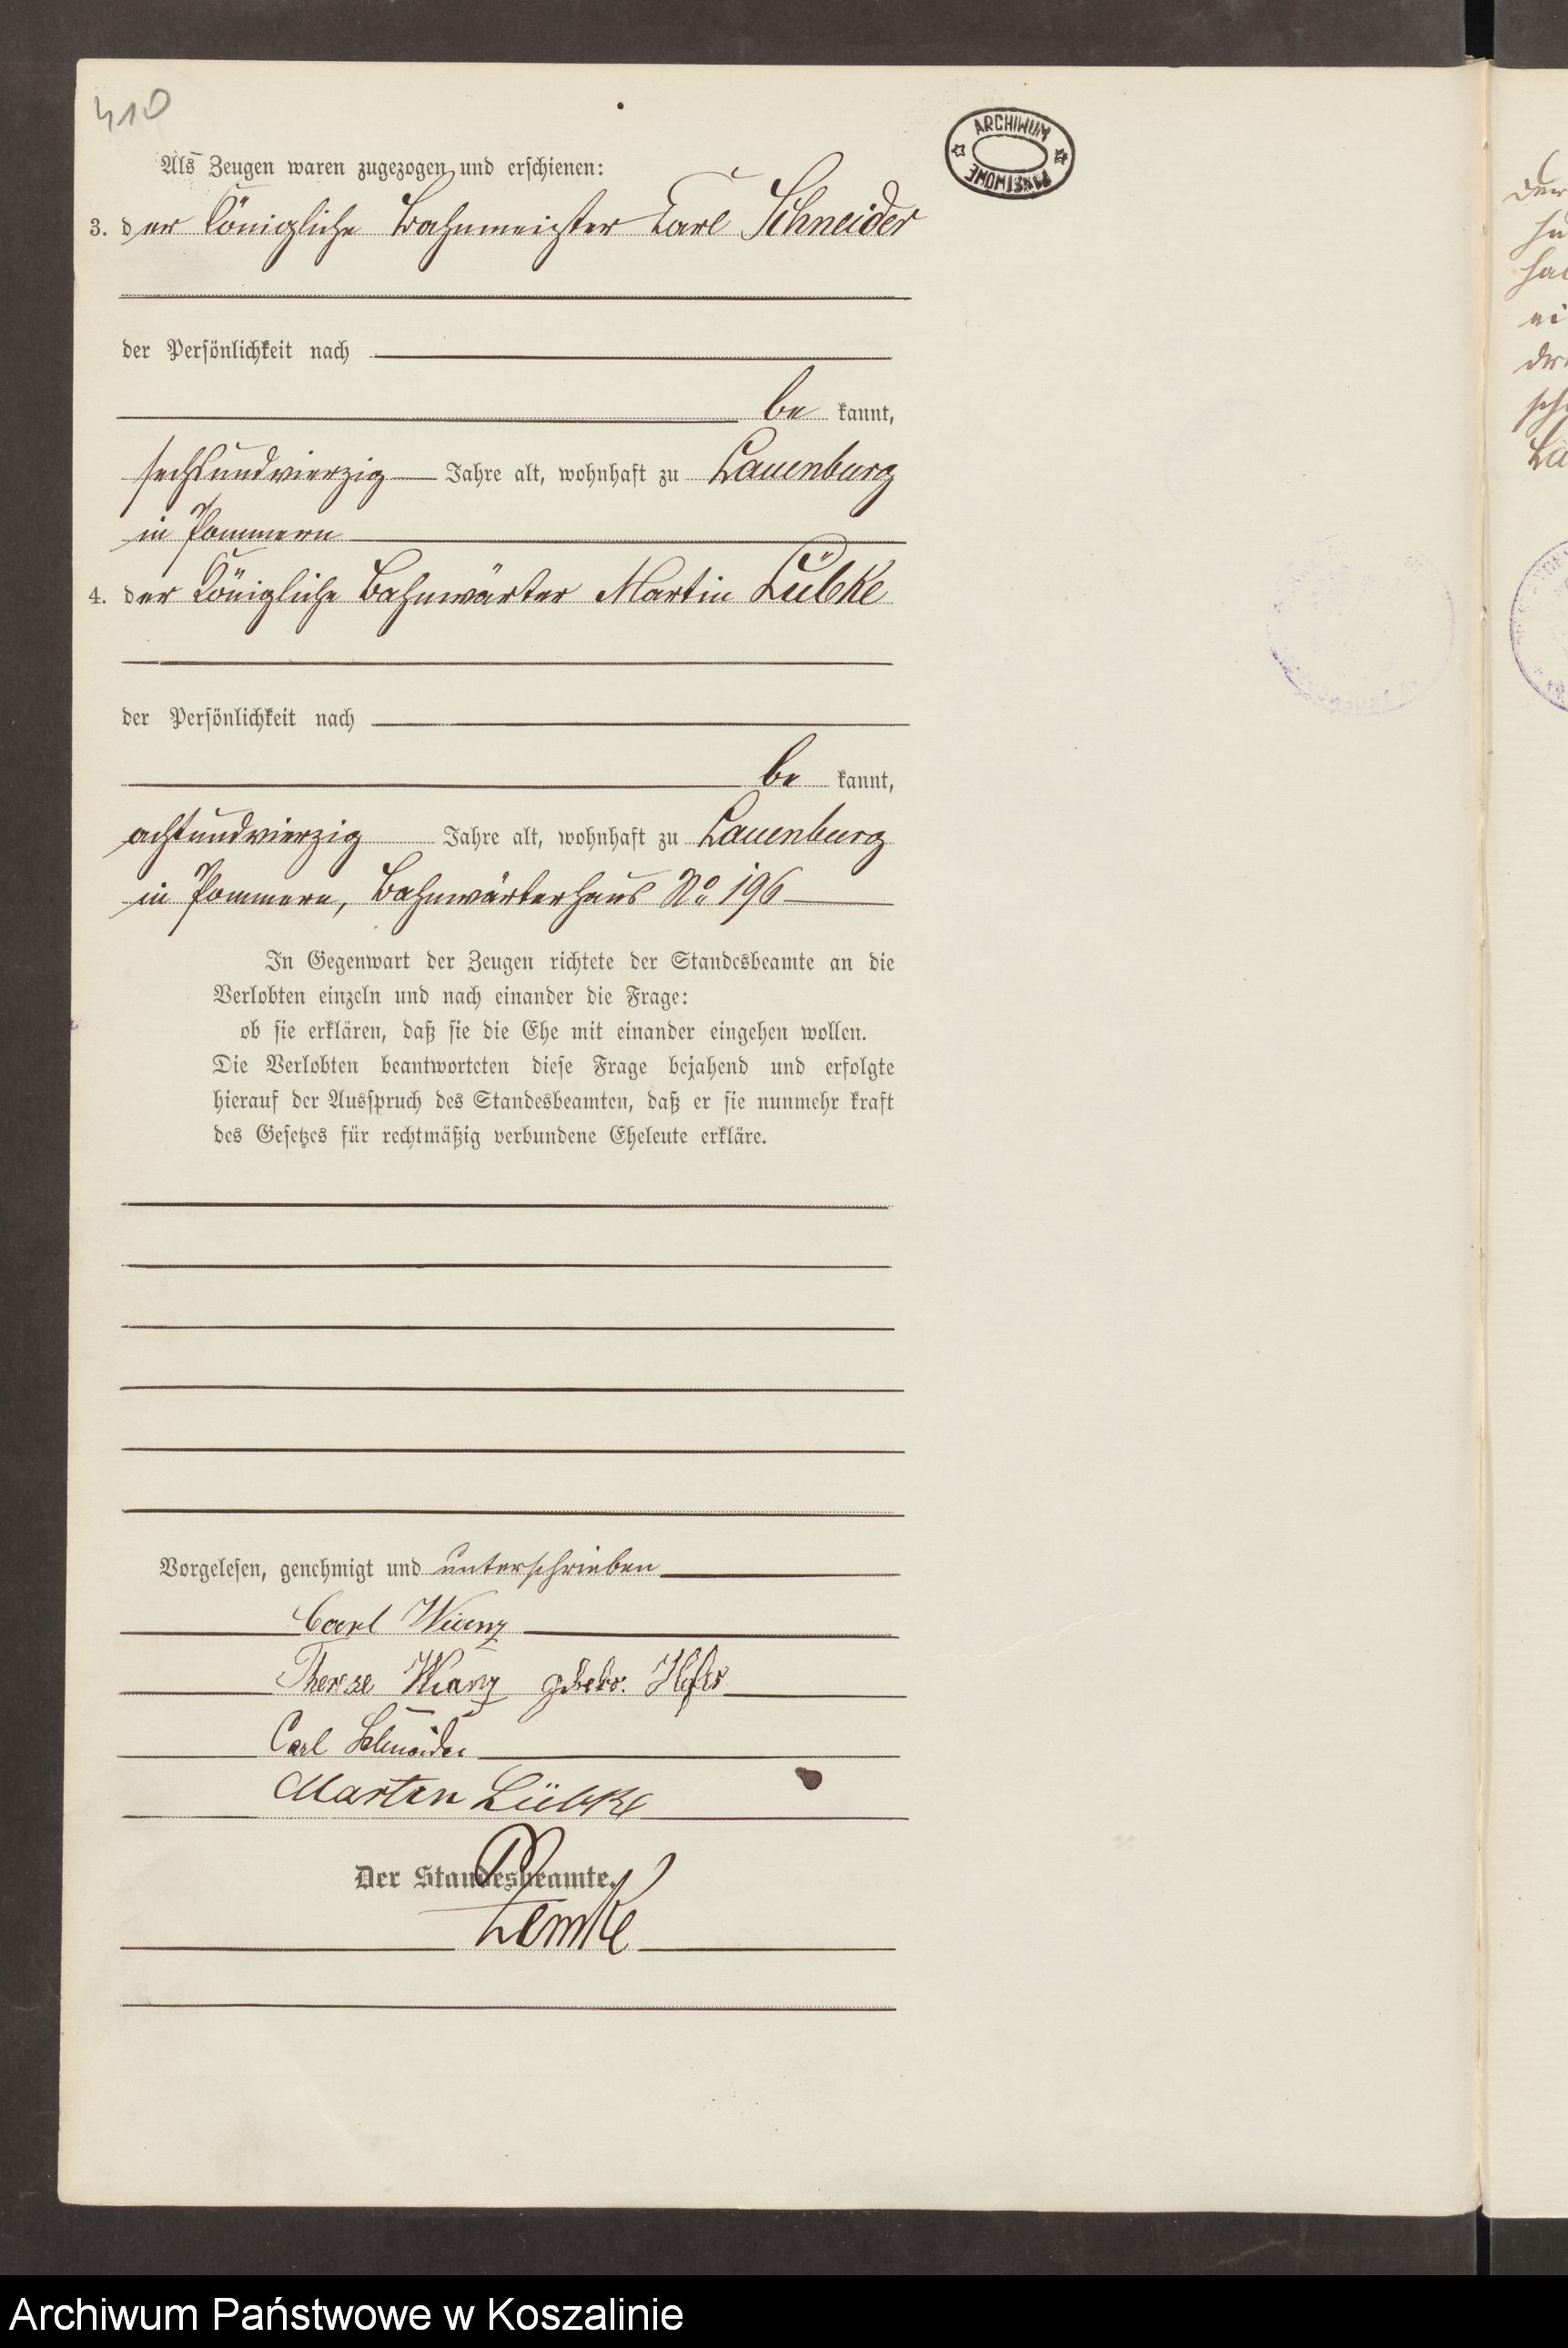 410
ARCHIWUM PAŃSTWOWE
Als Zeugen waren zugezogen und erschienen:
3. der Königliche Bahnmeister Carl Schneider
der Persönlichkeit nach
be kannt,
sechsundvierzig Jahre alt, wohnhaft zu Lauenburg
in Pommern
4. der Königliche Bahnwärter Martin Lübke
der Persönlichkeit nach
be kannt,
achtundvierzig Jahre alt, wohnhaft zu Lauenburg
in Pommern, Bahnwärterhaus No 196
In Gegenwart der Zeugen richtete der Standesbeamte an die
Verlobten einzeln und nach einander die Frage:
ob sie erklären, daß sie die Ehe mit einander eingehen wollen.
Die Verlobten beantworteten diese Frage bejahend und erfolgte
hierauf der Ausspruch des Standesbeamten, daß er sie nunmehr kraft
des Gesetzes für rechtmäßig verbundene Eheleute erkläre.
Vorgelesen, genehmigt und unterschrieben
Carl Wianz
Therese Wianz
Carl Schneider
Martin Lübke
Der Standesbeamte.
Lemke
Archiwum Państwowe w Koszalinie